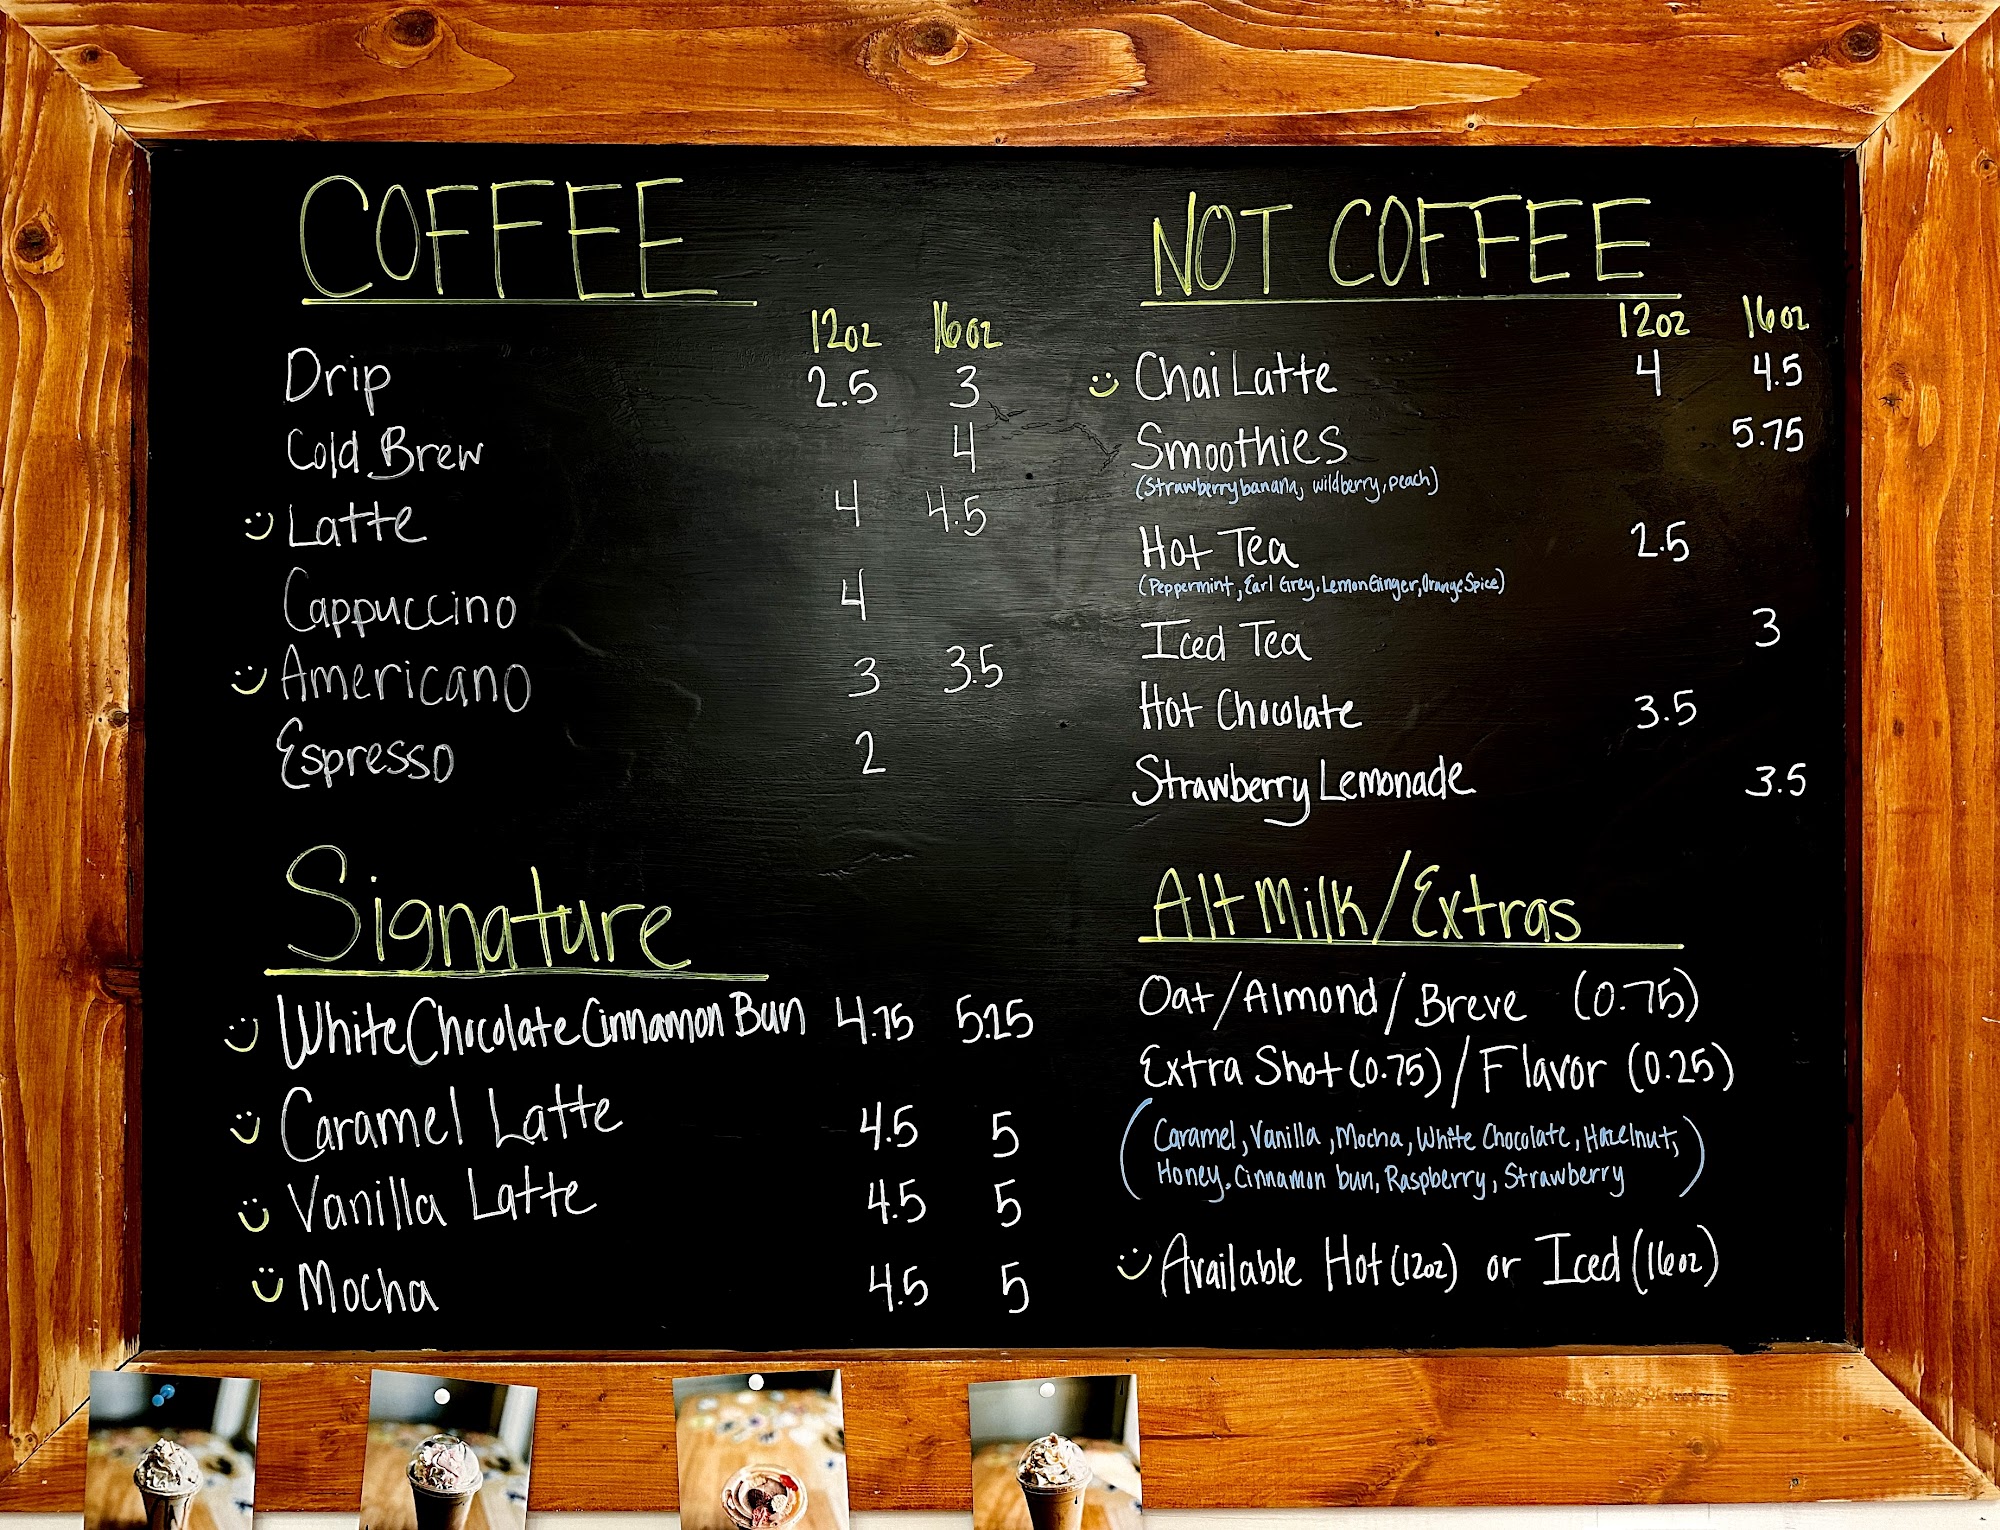 COFFEE
12oz 16oz
Drip 2.5 3
Cold Brew 4
Latte 4 4.5
Cappuccino 4
Americano 3 3.5
Espresso 2
Signature
White Chocolate Cinnamon Bun 4.75 5.25
Caramel Latte 4.5 5
Vanilla Latte 4.5 5
Mocha 4.5 5
NOT COFFEE
12oz 16oz
Chai Latte 4 4.5
Smoothies 5.75
(Strawberry banana, wildberry, peach)
Hot Tea 2.5
(Peppermint, Earl Grey, Lemon Ginger, Orange Spice)
Iced Tea 3
Hot Chocolate 3.5
Strawberry Lemonade 3.5
Alt Milk/Extras
Oat/Almond/Breve (0.75)
Extra Shot (0.75) / Flavor (0.25)
(Caramel, Vanilla, Mocha, White Chocolate, Hazelnut,
Honey, Cinnamon bun, Raspberry, Strawberry)
Available Hot (12oz) or Iced (16oz)